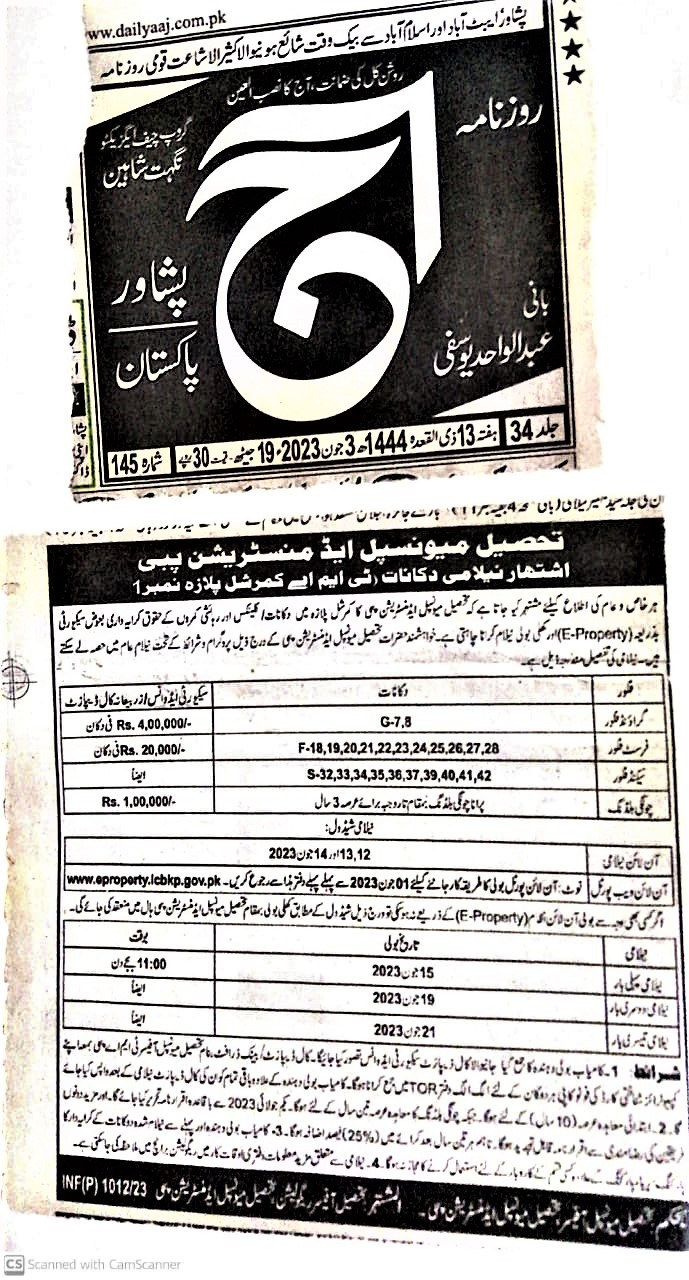 www.dailyaaj.com.pk
پشاور ایبٹ آباد اور اسلام آباد سے بیک وقت شائع ہونیوالا کثیر الاشاعت قومی روزنامہ
روشن کل کی ضمانت، آج کا نصب العین
روزنامہ
آج
گروپ چیف ایگزیکٹو
نگہت شاہین
پشاور
پاکستان
بانی
عبدالواحد یوسفی
جلد 34 ہفتہ 13 ذی القعدہ 1444ھ 3 جون 2023ء 19 جیٹھ قیمت 30 روپے شمارہ 145
تحصیل میونسپل ایڈمنسٹریشن پبی
اشتہار نیلامی دکانات (ٹی ایم اے کمرشل پلازہ نمبر 1
ہر خاص و عام کی اطلاع کیلئے مشتہر کیا جاتا ہے کہ تحصیل میونسپل ایڈمنسٹریشن پبی کا کمرشل پلازہ میں دکانات/کلینکس اور رہائشی کمروں کے حقوق کرایہ داری بعوض سیکیورٹی
بذریعہ (E-Property) اور کھلی بولی نیلام کرنا چاہتی ہے۔ خواہشمند حضرات تحصیل میونسپل ایڈمنسٹریشن پبی کے درج ذیل پروگرام و شرائط کے تحت نیلام عام میں حصہ لے سکتے
ہیں۔ نیلامی کی تفصیل مندرجہ ذیل ہے۔
فلور دکانات سیکیورٹی ایڈوانس/زر بیعانہ کال ڈیپازٹ
گراؤنڈ فلور G-7,8 Rs. 4,00,000/- فی دکان
فرسٹ فلور F-18,19,20,21,22,23,24,25,26,27,28 Rs. 20,000/- فی دکان
سیکنڈ فلور S-32,33,34,35,36,37,39,40,41,42 ایضاً
چونگی بلڈنگ پرانا چونگی بلڈنگ بمقام تاروجبہ برائے عرصہ 3 سال Rs. 1,00,000/-
نیلامی شیڈول:
آن لائن نیلامی 13,12 اور 14 جون 2023
آن لائن ویب پورٹل نوٹ: آن لائن پورٹل بولی کا طریقہ کار جاننے کیلئے 01 جون 2023 سے پہلے پہلے دفتر ہذا سے رجوع کریں۔ www.eproperty.lcbkp.gov.pk
اگر کسی بھی وجہ سے بولی آن لائن نظام (E-Property) کے ذریعے نہ ہو سکی تو درج ذیل شیڈول کے مطابق کھلی بولی بمقام تحصیل میونسپل ایڈمنسٹریشن پبی ہال میں منعقد کی جائے گی۔
نیلامی تاریخ بولی بوقت
نیلامی پہلی بار 15 جون 2023 11:00 بجے دن
نیلامی دوسری بار 19 جون 2023 ایضاً
نیلامی تیسری بار 21 جون 2023 ایضاً
شرائط: 1۔ کامیاب بولی دہندہ کا جمع کیا جانیوالا کال ڈیپازٹ سیکیورٹی ایڈوانس تصور کیا جائیگا۔ کال ڈیپازٹ/بینک ڈرافٹ بنام تحصیل میونسپل آفیسر ٹی ایم اے پبی بمعہ اپنے
کمپیوٹرائز شناختی کارڈ کی فوٹو کاپی ہر دوکان کے لئے الگ الگ دفتر TOR میں جمع کرانا ہوگا۔ کامیاب بولی دہندہ کے علاوہ باقی تمام کو ان کی کال ڈیپازٹ نیلامی کے بعد واپس کیا جائے
گا۔ 2۔ ابتدائی معاہدہ عرصہ (10 سال) کے لئے ہوگا۔ جبکہ چونگی بلڈنگ کا معاہدہ عرصہ تین سال کے لئے ہوگا۔ یکم جولائی 2023 سے باقاعدہ اقرار نامہ تحریر کیا جائے گا۔ اور مزید دونوں
فریقین کی رضامندی سے اقرار نامہ قابل تجدید ہوگا۔ تاہم ہر تین سال بعد کرائے میں (25%) فیصد اضافہ ہوگا۔ 3۔ کامیاب بولی دہندہ اور پہلے سے نیلام شدہ دوکانات کے کرایہ دار کا
پارکنگ کے علاوہ کسی قسم کے کاروبار کے لئے استعمال کرنے کا مجاز نہ ہوگا۔ 4۔ نیلامی سے متعلق مزید معلومات دفتری اوقات کار میں ریگولیشن برانچ میں ملاحظہ کی جا سکتی ہے۔
بحکم تحصیل میونسپل آفیسر تحصیل میونسپل ایڈمنسٹریشن پبی۔ المشتہر تحصیل آفیسر ریگولیشن تحصیل میونسپل ایڈمنسٹریشن پبی INF(P) 1012/23
CS Scanned with CamScanner